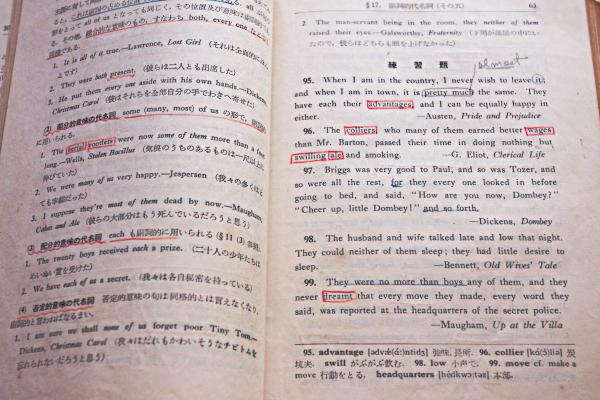 1. It is all of it true.—Lawrence, Lost Girl
2. They were both present. (彼らは二人とも出席した)
3. He put them every one aside with his own hands.—Dickens,
Christmas Carol
(2) 部分的意味の代名詞 some (many, most) of us の形で、
に用いられる.
1. The aerial rootlets were now some of them more than a foot
long.—Wells, Stolen Bacillus
伸びていた)
2. We were many of us very happy.—Jespersen
3. I suppose they're most of them dead by now.—Maugham,
Cakes and Ale (彼らの大部分はもう死んでいるだろうと思う)
(3) 配分的意味の代名詞 each も副詞的に用いられる (§ 11 (3) 参照).
1. The twenty boys received each a prize. (二十人の少年たちは
2. We have each of us a secret. (我々は各自秘密を持っている)
(4) 否定的意味の代名詞 否定的意味の句は同格的とは言えなくなり,
副詞的と言わねばなるまい.
1. I am sure we shall none of us forget poor Tiny Tom.—
Dickens, Christmas Carol (我々はだれもかわいそうなチビトムを
忘れられないだろうと思う)
§ 17. 副詞的代名詞 (その五) 63
2. The man-servant being in the room, they neither of them
raised their eyes.—Galsworthy, Fraternity (下男が部屋の中にい
たので, 彼らはどちらも眼を上げなかった)
almost
練習題
95. When I am in the country, I never wish to leave it;
and when I am in town, it is pretty much the same. They
have each their advantages, and I can be equally happy in
either. —Austen, Pride and Prejudice
96. The colliers, who many of them earned better wages
than Mr. Barton, passed their time in doing nothing but
swilling ale and smoking. —G. Eliot, Clerical Life
97. Briggs was very good to Paul, and so was Tozer, and
so were all the rest, for they every one looked in before
going to bed, and said, "How are you now, Dombey?"
"Cheer up, little Dombey!" and so forth.
—Dickens, Dombey
98. The husband and wife talked late and low that night.
They could neither of them sleep; they had little desire to
sleep. —Bennett, Old Wives' Tale
99. They were no more than boys any of them, and they
never dreamt that every move they made, every word they
said, was reported at the headquarters of the secret police.
—Maugham, Up at the Villa
95. advantage [ədvǽ(ɑ́:)ntidʒ] 強味, 長所. 96. collier [kɔ́(ɔ́)liə] 炭
坑夫. swill がぶがぶ飲む. 98. low 小声で. 99. move cf. make a
move 行動をとる. headquarters [hédkwɔ:təz] 本部.